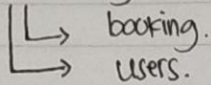 booking.
users.